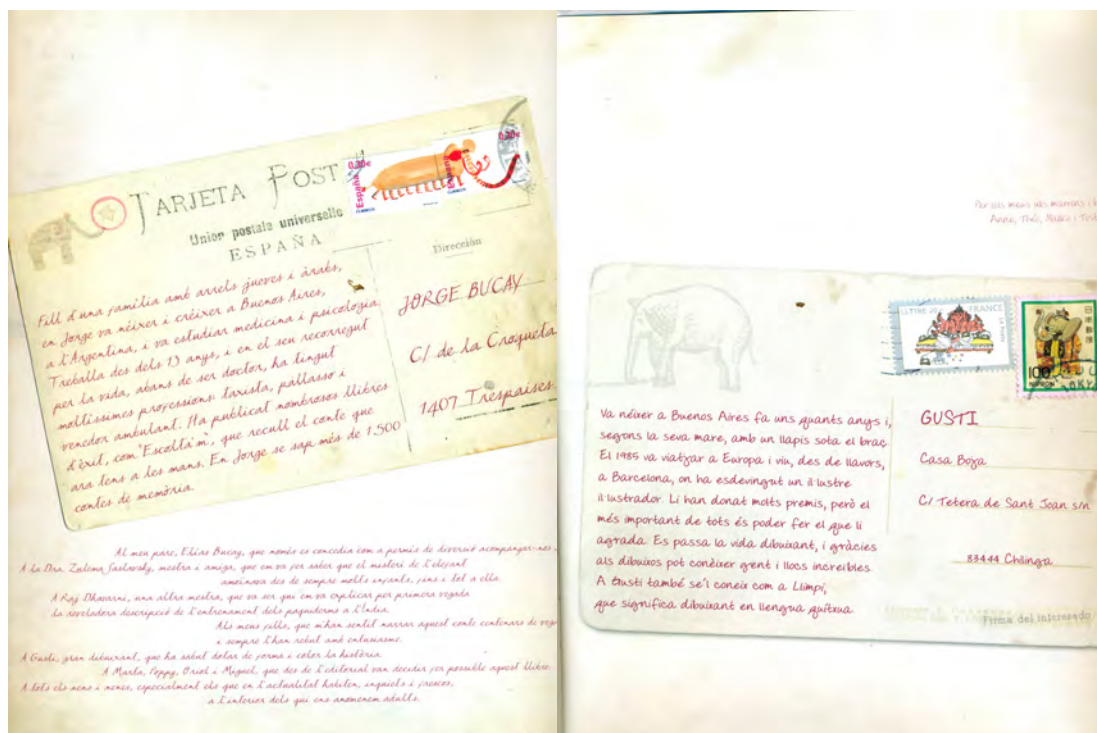 TARJETA POST
Union postale universelle
ESPAÑA
0,30€
España
CORREOS
0,30€
España
CORREOS
Dirección
Fill d'una família amb arrels jueves i àrabs,
en Jorge va néixer i créixer a Buenos Aires,
a l'Argentina, i va estudiar medicina i psicologia.
Treballa des dels 13 anys, i en el seu recorregut
per la vida, abans de ser doctor, ha tingut
moltíssimes professions: taxista, pallasso i
venedor ambulant. Ha publicat nombrosos llibres
d'èxit, com "Escolta'm", que recull el conte que
ara tens a les mans. En Jorge se sap més de 1.500
contes de memòria.
JORGE BUCAY
C/ de la Croqueta
1407 Trespaises
Al meu pare, Elías Bucay, que només es concedia com a permís de diversió acompanyar-nos
A la Dra. Zulema Saslavsky, mestra i amiga, que em va fer saber que el misteri de l'elefant
amoïnava des de sempre molts infants, fins i tot a ella.
A Raj Dharwarni, una altra mestra, que va ser qui em va explicar per primera vegada
la reveladora descripció de l'entrenament dels paquiderms a l'Índia.
Als meus fills, que m'han sentit narrar aquest conte centenars de
i sempre l'han rebut amb entusiasme.
A Gusti, gran dibuixant, que ha sabut dotar de forma i color la història.
A Marta, Poppy, Oriol i Miguel, que des de l'editorial van decidir fer possible aquest llibre.
A tots els nens i nenes, especialment els que en l'actualitat habiten, inquiets i frescos,
a l'interior dels qui ens anomenem adults.
Per als meus
Anne, Theo,
LETTRE 20
FRANCE
LA POSTE
日本郵便
100
NIPPON
Va néixer a Buenos Aires fa uns quants anys i,
segons la seva mare, amb un llapis sota el braç.
El 1985 va viatjar a Europa i viu, des de llavors,
a Barcelona, on ha esdevingut un il·lustre
il·lustrador. Li han donat molts premis, però el
més important de tots és poder fer el que li
agrada. Es passa la vida dibuixant, i gràcies
als dibuixos pot conèixer gent i llocs increïbles.
A Gusti també se'l coneix com a Llimpi,
que significa dibuixant en llengua quítxua.
GUSTI
Casa Boja
C/ Tetera de Sant Joan s/n
83444 Chilinga
Firma del interesado